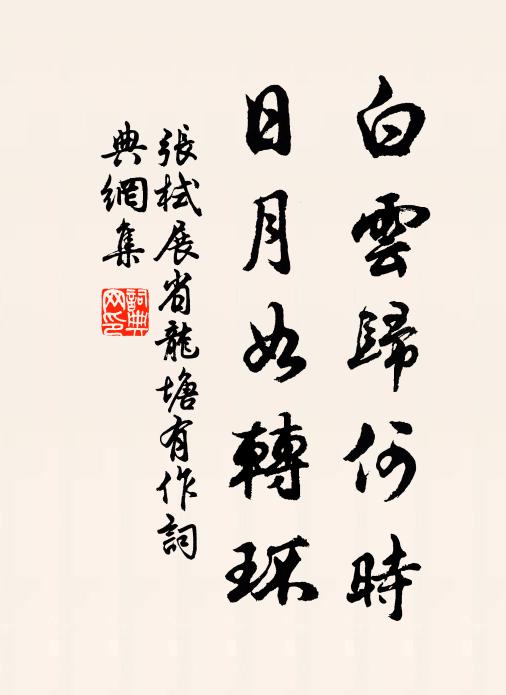 白雲歸何時
日月如轉環
張栻展省龍塘有作詞
典網集
詞典
网印